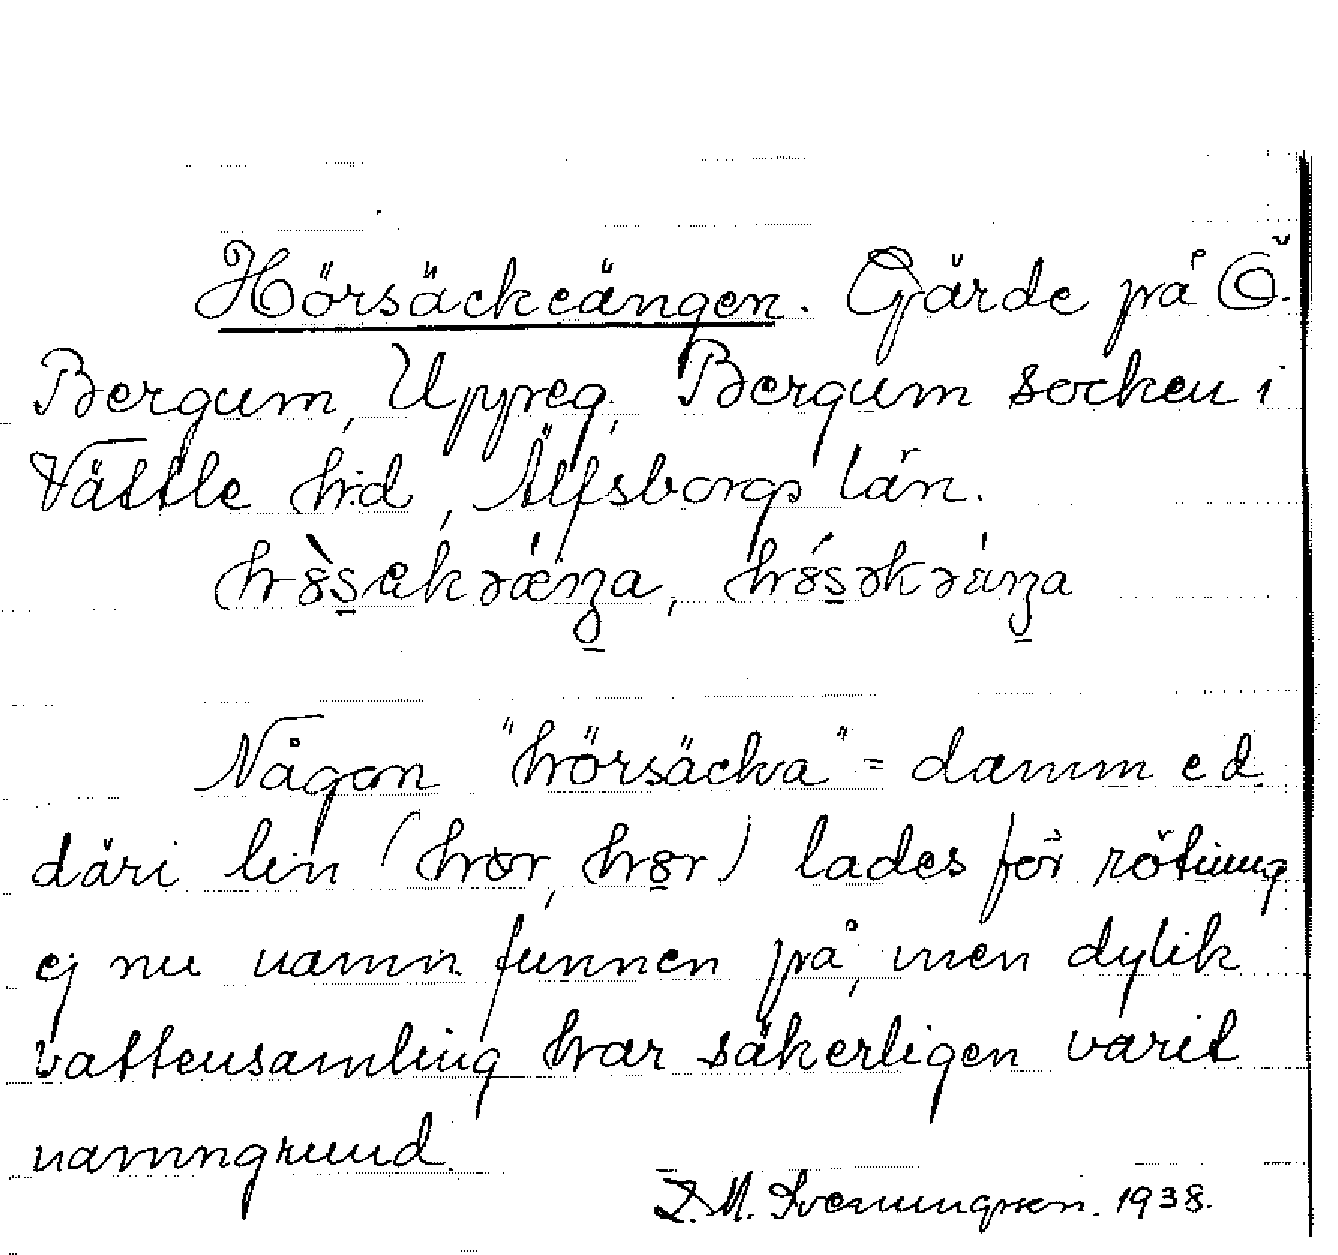 Hörsäckeängen. Gärde på Ö.
Bergum, Uppreg, Bergum socken i
Vättle hd, Älfsborgs län.
Någon "hörsäcka" = damm e d
däri lin (hör, hör) lades för rötning
ej nu namn funnen på, men dylik
vattensamling har säkerligen varit
namngrund.
1938.